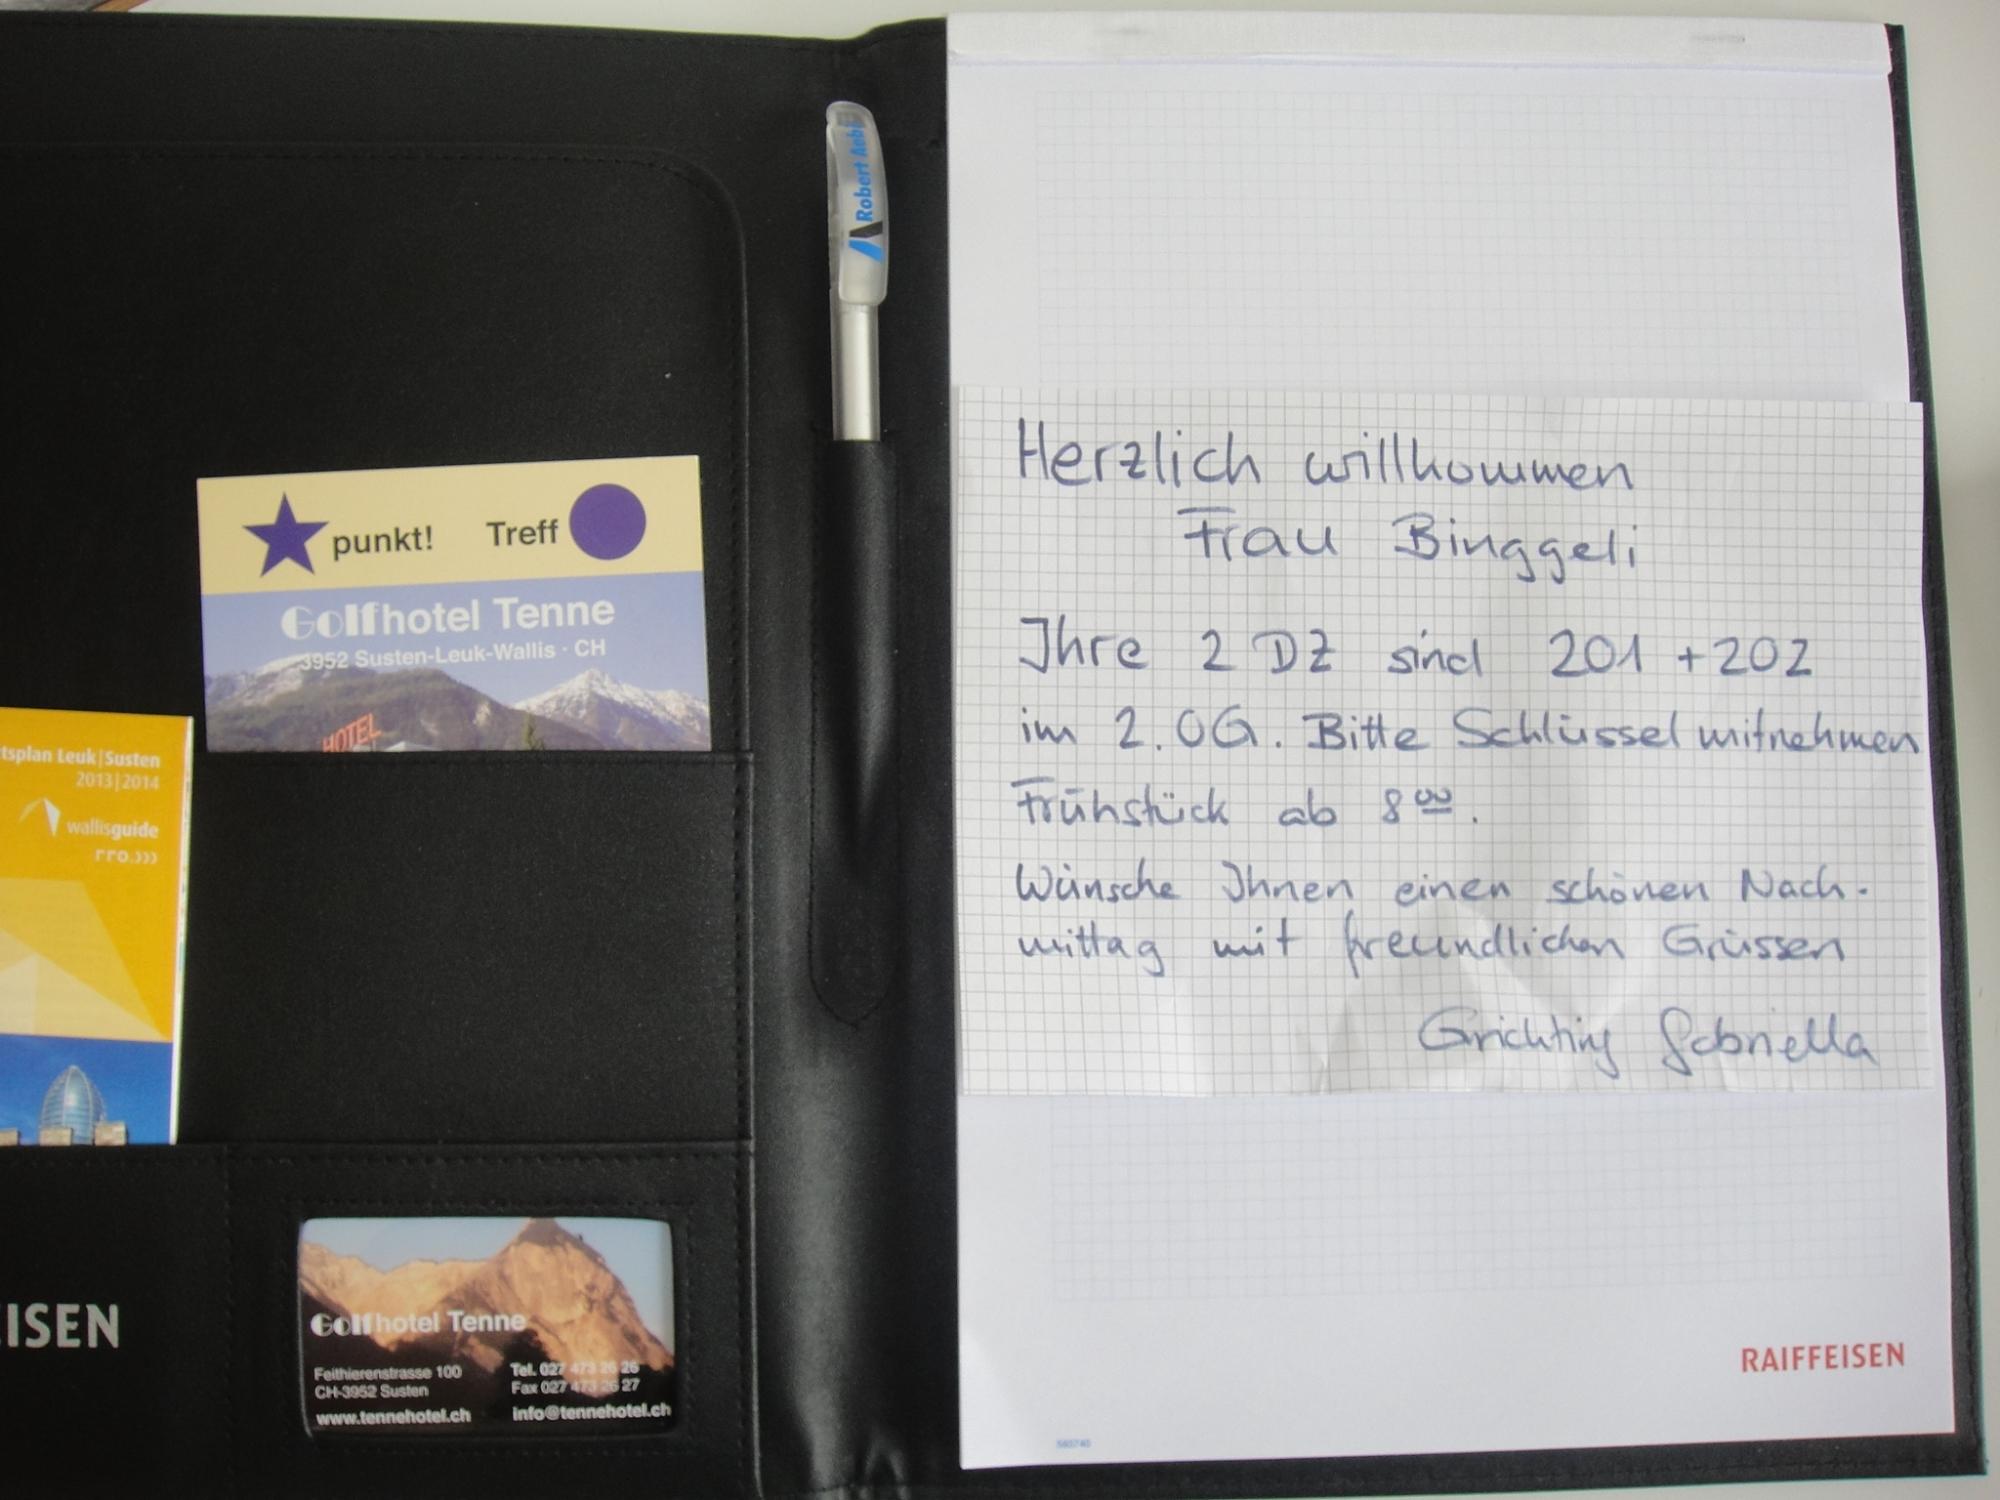 Robert Aebi
punkt! Treff
Golfhotel Tenne
3952 Susten-Leuk-Wallis · CH
HOTEL
tsplan Leuk|Susten
2013|2014
wallisguide
rro.)))
EISEN
Golfhotel Tenne
Feithierenstrasse 100
CH-3952 Susten
www.tennehotel.ch
Tel. 027 473 26 26
Fax 027 473 26 27
info@tennehotel.ch
Herzlich willkommen
Frau Binggeli
Ihre 2 DZ sind 201 + 202
im 2. OG. Bitte Schlüssel mitnehmen
Frühstück ab 8 00.
Wünsche Ihnen einen schönen Nach-
mittag mit freundlichen Grüssen
Grichting Gabriella
RAIFFEISEN